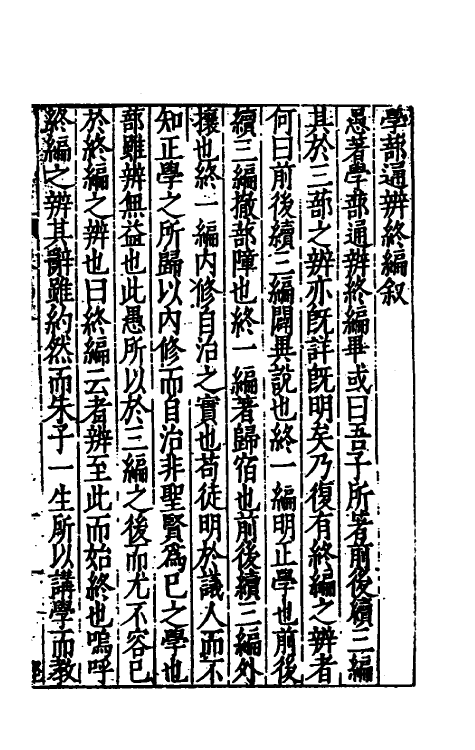 學蔀通辨終編叙
愚著學蔀通辨終編畢或曰吾子所著前後續三編
其於三蔀之辨亦既詳既明矣乃復有終編之辨者
何曰前後續三編闢異說也終一編明正學也前後
續三編撤蔀障也終一編著歸宿也前後續三編外
攘也終一編内修自治之實也苟徒明於議人而不
知正學之所歸以内修而自治非聖賢為已之學也
蔀雖辨無益也此愚所以於三編之後而尤不容已
於終編之辨也曰終編云者辨至此而始終也嗚呼
終編之辨其辭雖約然而朱子一生所以講學而教